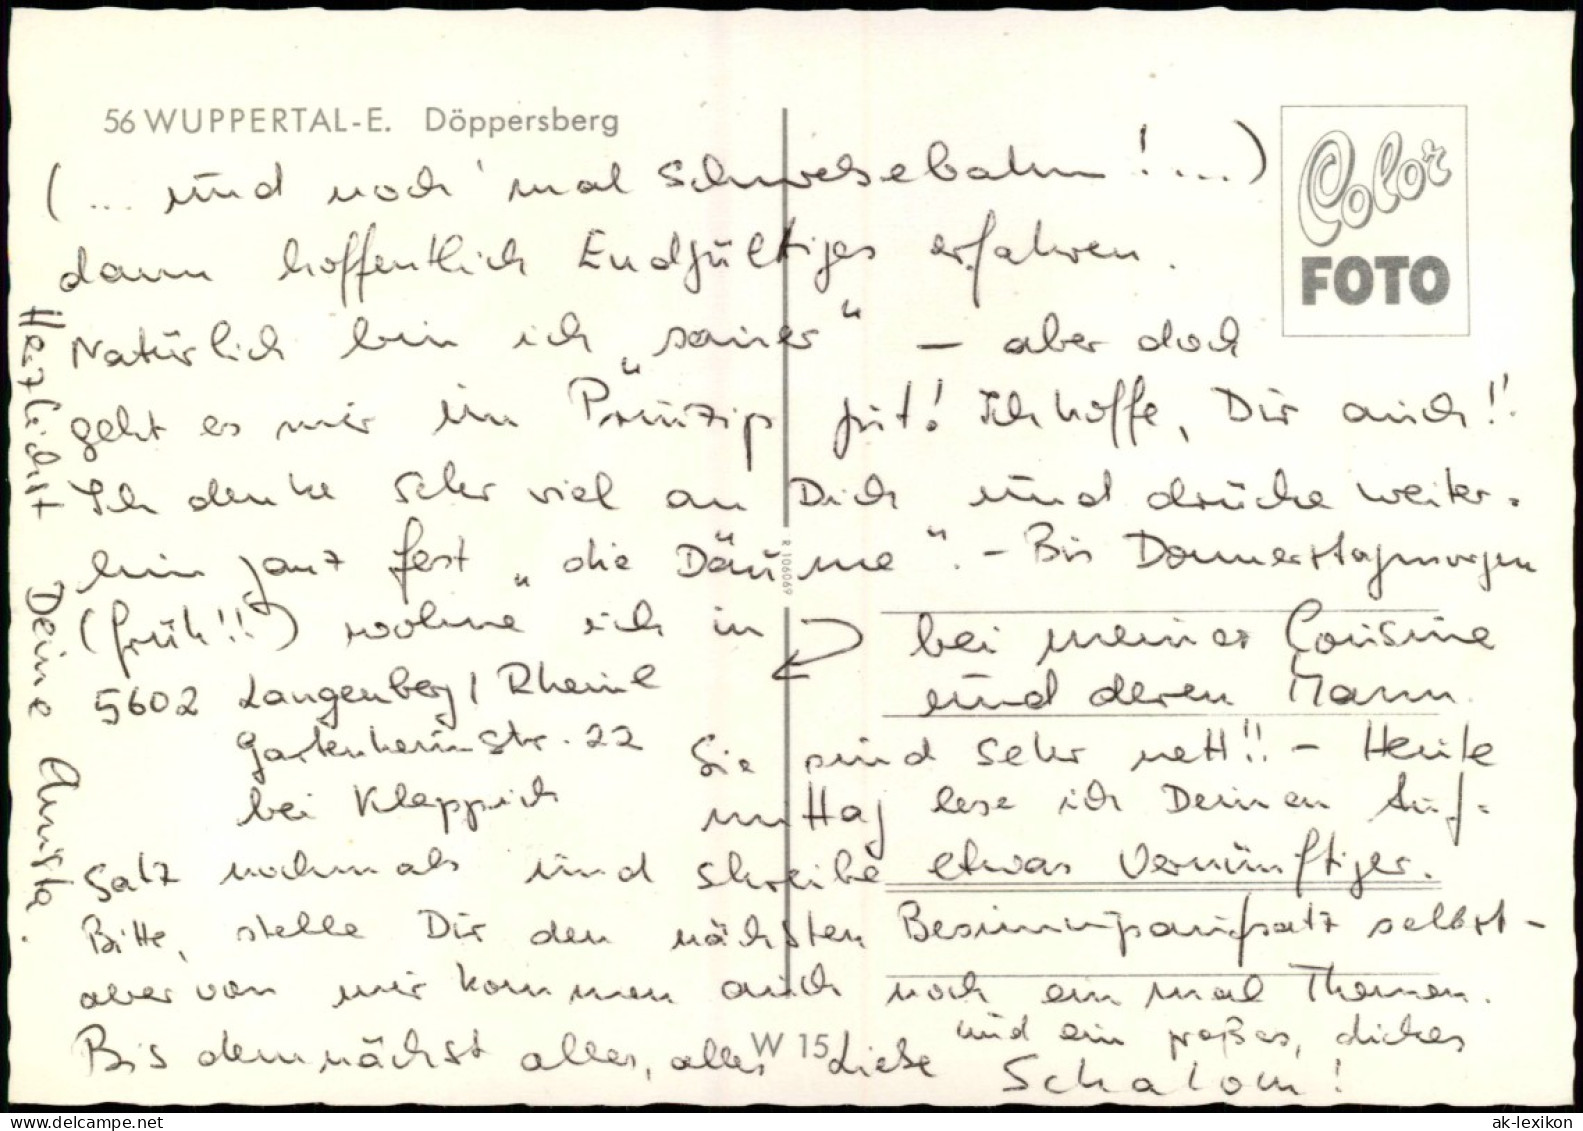 56 WUPPERTAL-E. Döppersberg
Color
FOTO
(... und noch 'mal Schwebebahn!...)
dann hoffentlich Endgültiges erfahren.
Natürlich bin ich „sauer" – aber doch
geht es mir im Prinzip gut! Ich hoffe, Dir auch!!
Ich denke sehr viel an Dich und drücke weiter-
hin ganz fest „die Däume". – Bis Donnerstagmorgen
(früh!!) wohne ich in
bei meiner Cousine
und deren Mann.
5602 Langenberg/Rheinl
Gartenheimstr. 22
bei Klappich
Sie sind sehr nett!! – Heute
mittag lese ich Deinen Auf-
satz nochmals und schreibe etwas Vernünftiges.
Bitte, stelle Dir den nächsten Besinnungsaufsatz selbst –
aber von mir kommen auch noch ein mal Themen.
Bis demnächst alles, alles Liebe und ein großes, dickes
Schalom!
Herzlichst Deine Anita.
R 106069
W 15
ak-lexikon